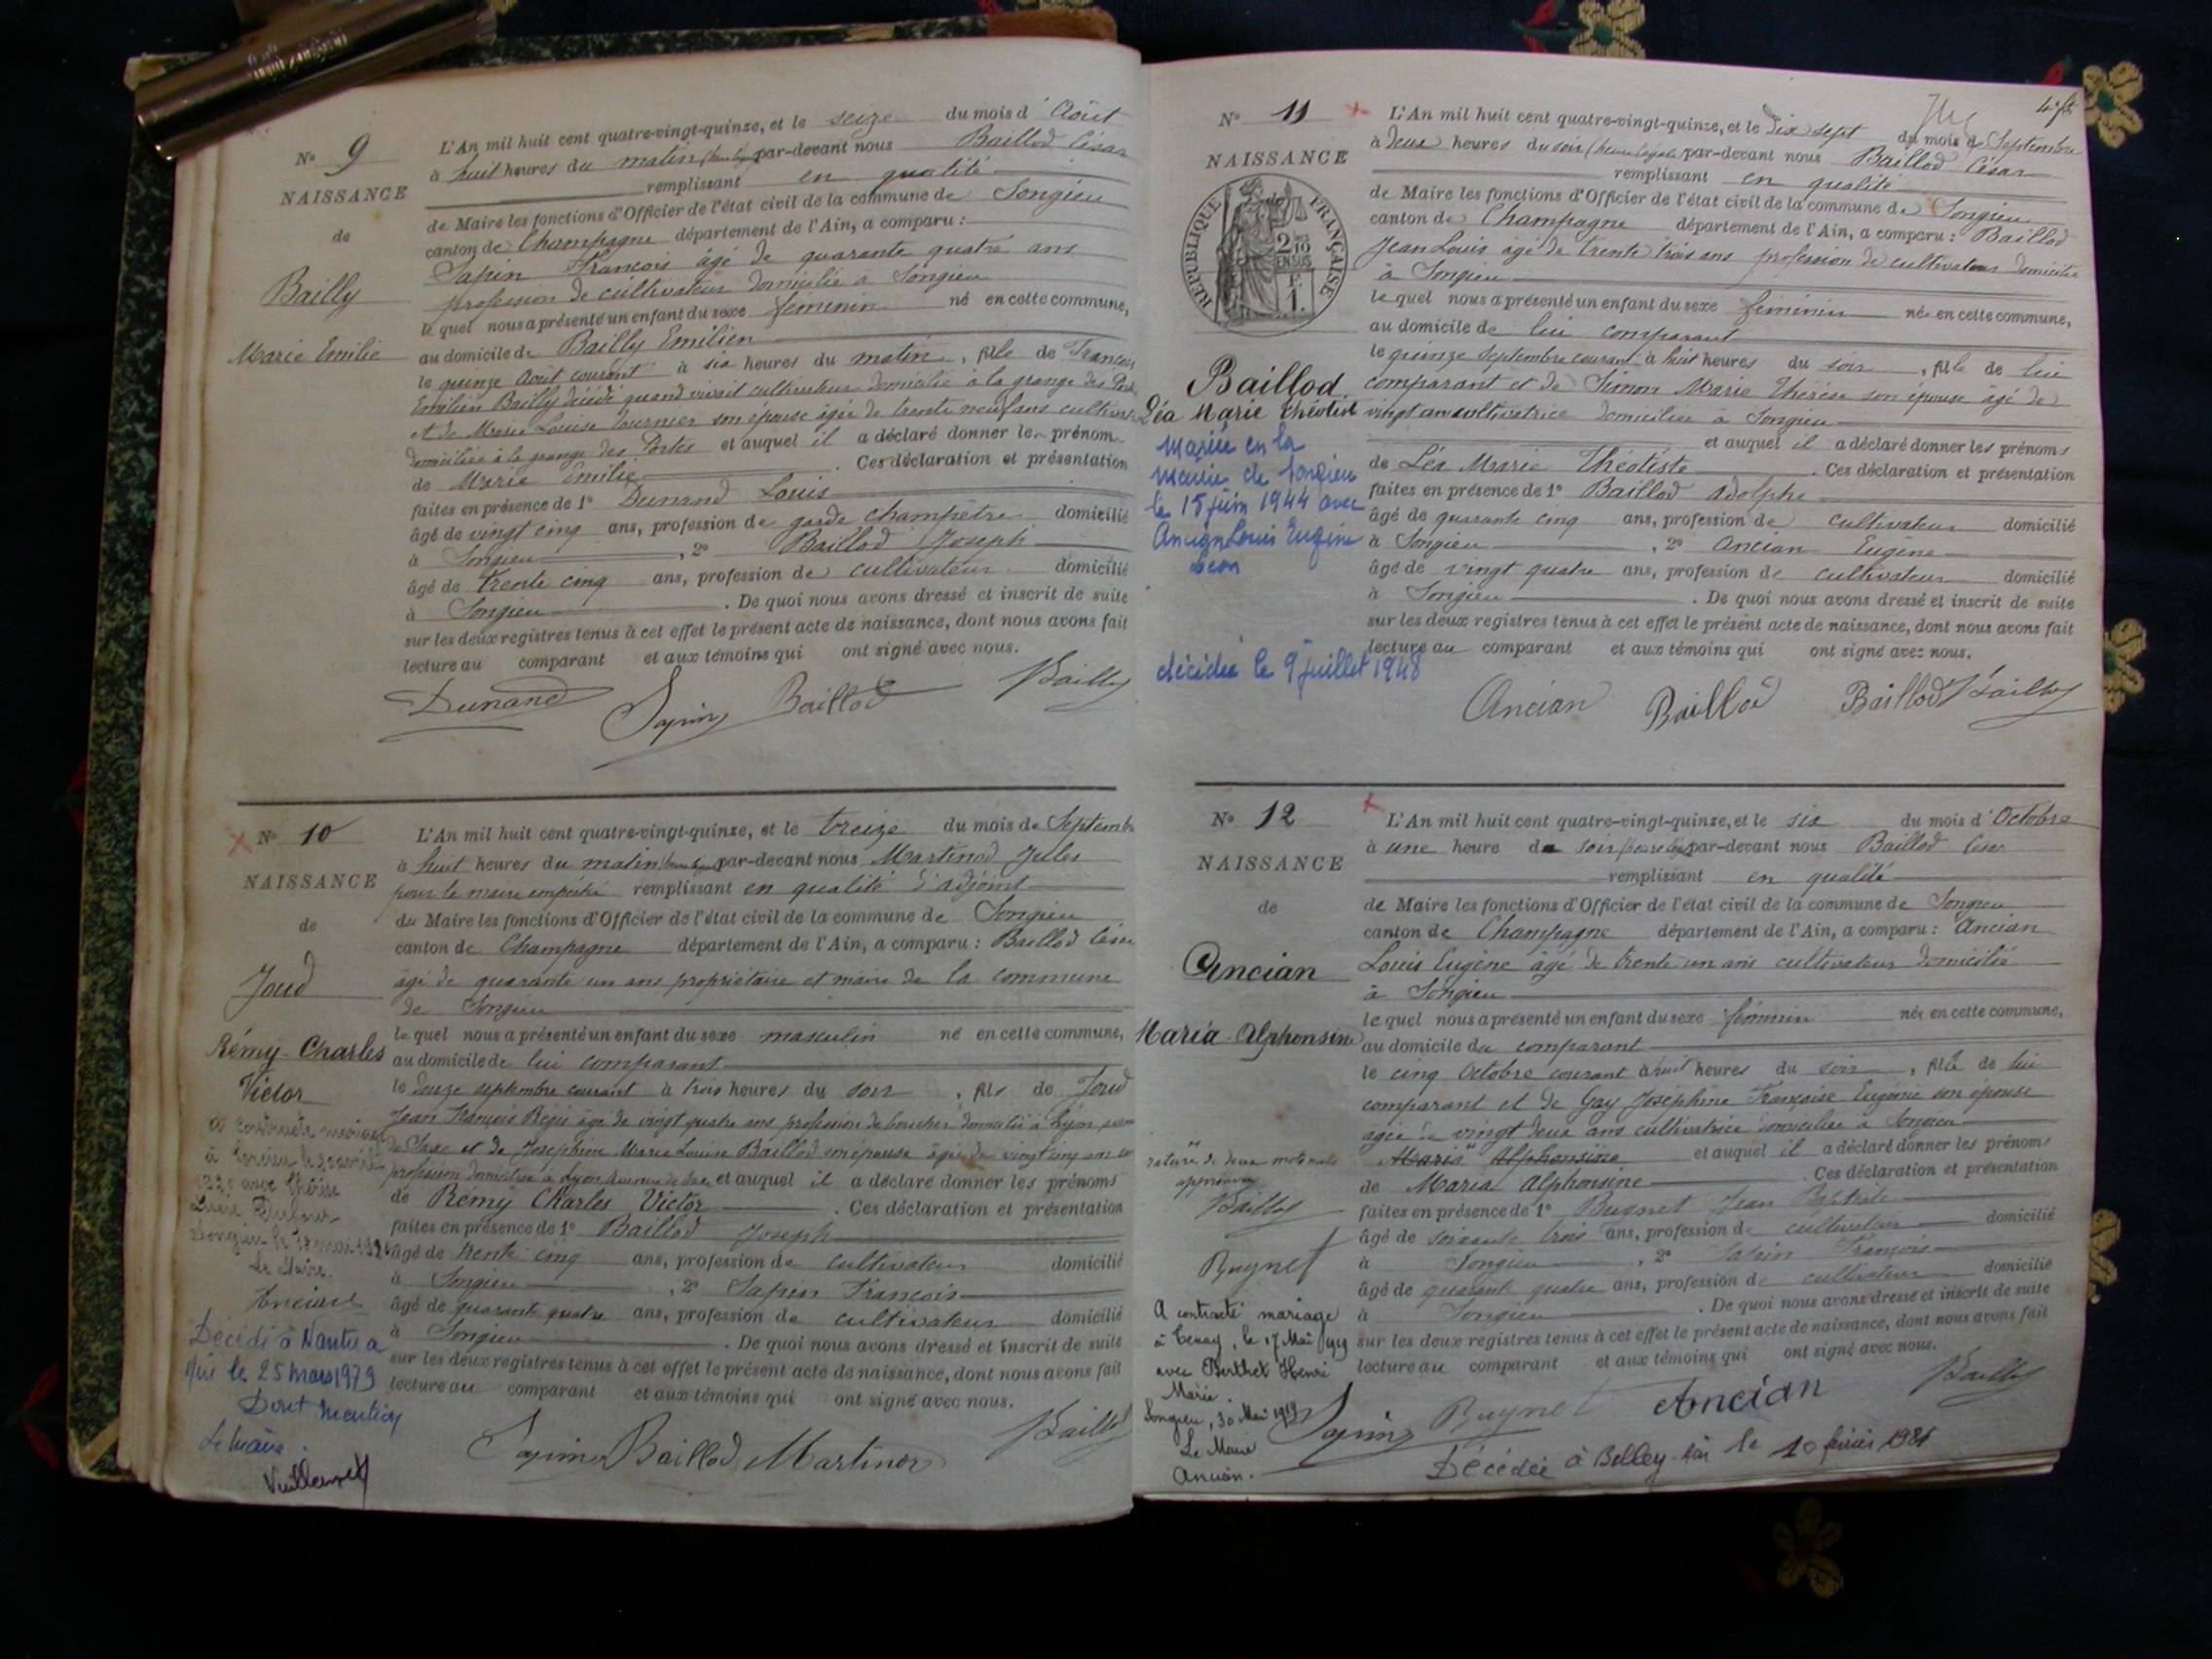 N° 9
NAISSANCE
de
Bailly
Marie Emilie
L'An mil huit cent quatre-vingt-quinze, et le seize du mois d'Août
à huit heures du matin (heure légale) par-devant nous Baillod César
remplissant en qualité
de Maire les fonctions d'Officier de l'état civil de la commune de Songieu
canton de Champagne département de l'Ain, a comparu :
Sapin François âgé de quarante quatre ans
profession de cultivateur domicilié à Songieu
le quel nous a présenté un enfant du sexe féminin né en cette commune,
au domicile de Bailly Emilien
le quinze Août courant à six heures du matin, fille de François
Emilien Bailly décédé quand vivait cultivateur domicilié à la grange des
et de Marie Louise Tournier son épouse âgée de trente neuf ans
domiciliée à la grange des Portes et auquel il a déclaré donner les prénoms
de Marie Emilie. Ces déclaration et présentation
faites en présence de 1° Dunand Louis
âgé de vingt cinq ans, profession de garde champêtre domicilié
à Songieu, 2° Baillod Joseph
âgé de trente cinq ans, profession de cultivateur domicilié
à Songieu. De quoi nous avons dressé et inscrit de suite
sur les deux registres tenus à cet effet le présent acte de naissance, dont nous avons fait
lecture au comparant et aux témoins qui ont signé avec nous.
Dunand Sapin Baillod Baillod
N° 10
NAISSANCE
de
Joud
Rémy-Charles
Victor
Le Maire
Ancian
Décédé à Nantua
le 25 mars 1979
Dont mention
Le Maire
L'An mil huit cent quatre-vingt-quinze, et le treize du mois de Septembre
à huit heures du matin (heure légale) par-devant nous Martinod Jules
pour le maire empêché remplissant en qualité d'adjoint
du Maire les fonctions d'Officier de l'état civil de la commune de Songieu
canton de Champagne département de l'Ain, a comparu : Baillod César
âgé de quarante un ans propriétaire et maire de la commune
de Songieu
le quel nous a présenté un enfant du sexe masculin né en cette commune,
au domicile de lui comparant
le douze septembre courant à trois heures du soir, fils de Joud
Jean François Régis âgé de vingt quatre ans profession de boucher domicilié à Lyon
de Saxe et de Joséphine Marie Louise Baillod son épouse âgée de vingt cinq ans
profession domiciliée à Lyon avenue de Saxe et auquel il a déclaré donner les prénoms
de Rémy Charles Victor. Ces déclaration et présentation
faites en présence de 1° Baillod Joseph
âgé de trente cinq ans, profession de cultivateur domicilié
à Songieu, 2° Sapin François
âgé de quarante quatre ans, profession de cultivateur domicilié
à Songieu. De quoi nous avons dressé et inscrit de suite
sur les deux registres tenus à cet effet le présent acte de naissance, dont nous avons fait
lecture au comparant et aux témoins qui ont signé avec nous.
Sapin Baillod Martinod Baillod
N° 11
NAISSANCE
RÉPUBLIQUE FRANÇAISE
Baillod
Léa Marie Théotiste
mariée en la
mairie de Songieu
le 15 juin 1944 avec
Ancian Louis Eugène
décédée le 9 juillet 1948
L'An mil huit cent quatre-vingt-quinze, et le dix sept du mois de Septembre
à deux heures du soir (heure légale) par-devant nous Baillod César
remplissant en qualité
de Maire les fonctions d'Officier de l'état civil de la commune de Songieu
canton de Champagne département de l'Ain, a comparu : Baillod
Jean Louis âgé de trente trois ans profession de cultivateur domicilié
à Songieu
le quel nous a présenté un enfant du sexe féminin née en cette commune,
au domicile de lui comparant
le quinze Septembre courant à huit heures du soir, fille de lui
comparant et de Simon Marie Thérèse son épouse âgé de
vingt ans cultivatrice domiciliée à Songieu
et auquel il a déclaré donner les prénoms
de Léa Marie Théotiste. Ces déclaration et présentation
faites en présence de 1° Baillod Adolphe
âgé de quarante cinq ans, profession de cultivateur domicilié
à Songieu, 2° Ancian Eugène
âgé de vingt quatre ans, profession de cultivateur domicilié
à Songieu. De quoi nous avons dressé et inscrit de suite
sur les deux registres tenus à cet effet le présent acte de naissance, dont nous avons fait
lecture au comparant et aux témoins qui ont signé avec nous.
Ancian Baillod Baillod Baillod
N° 12
NAISSANCE
de
Ancian
Maria-Alphonsine
rature de deux mots nuls
approuvée
Baillod
Bugnet
A contracté mariage
à Tenay, le 17 Mai 1919
avec Berthet Henri
Marie.
Songieu, 30 Mai 1919
Le Maire
Ancian.
L'An mil huit cent quatre-vingt-quinze, et le six du mois d'Octobre
à une heure du soir (heure légale) par-devant nous Baillod César
remplissant en qualité
de Maire les fonctions d'Officier de l'état civil de la commune de Songieu
canton de Champagne département de l'Ain, a comparu : Ancian
Louis Eugène âgé de trente un ans cultivateur domicilié
à Songieu
le quel nous a présenté un enfant du sexe féminin née en cette commune,
au domicile du comparant
le cinq Octobre courant à huit heures du soir, fille de lui
comparant et de Gay Joséphine Françoise Eugénie son épouse
âgée de vingt deux ans cultivatrice domiciliée à Songieu
Maria Alphonsine et auquel il a déclaré donner les prénoms
de Maria Alphonsine. Ces déclaration et présentation
faites en présence de 1° Bugnet Jean Baptiste
âgé de soixante trois ans, profession de cultivateur domicilié
à Songieu, 2° Sapin François
âgé de quarante quatre ans, profession de cultivateur domicilié
à Songieu. De quoi nous avons dressé et inscrit de suite
sur les deux registres tenus à cet effet le présent acte de naissance, dont nous avons fait
lecture au comparant et aux témoins qui ont signé avec nous.
Sapin Bugnet Ancian Baillod
Décédée à Belley Ain le 10 février 1981